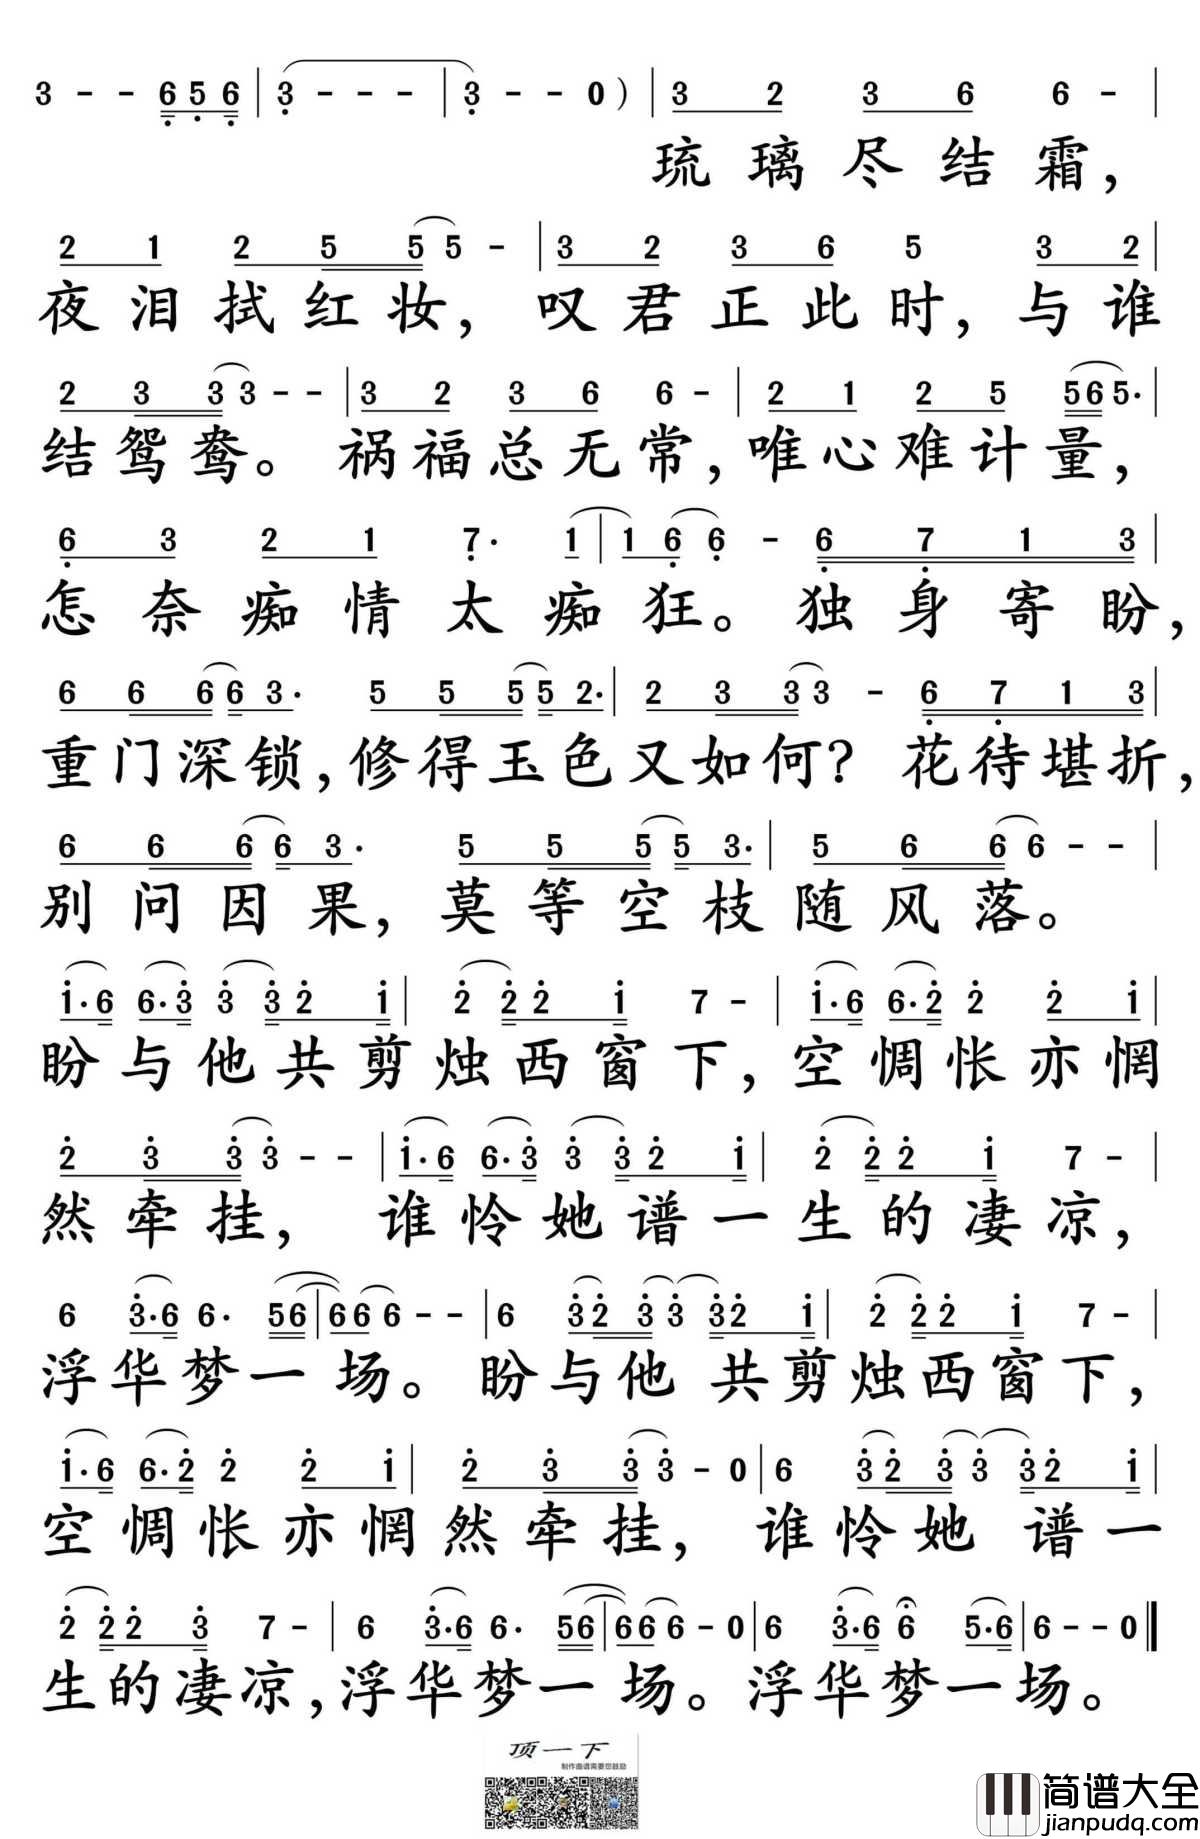 3 - - 6 5 6 | 3 - - - | 3 - - 0 ) | 3 2 3 6 6 - |
琉璃尽结霜，
2 1 2 5 5 5 - | 3 2 3 6 5 3 2 |
夜泪拭红妆，叹君正此时，与谁
2 3 3 3 - - | 3 2 3 6 6 - | 2 1 2 5 5 6 5. |
结鸳鸯。祸福总无常，唯心难计量，
6 3 2 1 7. 1 | 1 6 6 - 6 7 1 3 |
怎奈痴情太痴狂。独身寄盼，
6 6 6 6 3. 5 5 5 5 2. | 2 3 3 3 - 6 7 1 3 |
重门深锁，修得玉色又如何？花待堪折，
6 6 6 6 3. 5 5 5 5 3. | 5 6 6 6 - - |
别问因果，莫等空枝随风落。
1. 6 6. 3 3 3 2 1 | 2 2 2 1 7 - | 1. 6 6. 2 2 2 1 |
盼与他共剪烛西窗下，空惆怅亦惘
2 3 3 3 - - | 1. 6 6. 3 3 3 2 1 | 2 2 2 1 7 - |
然牵挂，谁怜她谱一生的凄凉，
6 3. 6 6. 5 6 | 6 6 6 - - | 6 3 2 3 3 3 2 1 | 2 2 2 1 7 - |
浮华梦一场。盼与他共剪烛西窗下，
1. 6 6. 2 2 2 1 | 2 3 3 3 - 0 | 6 3 2 3 3 3 2 1 |
空惆怅亦惘然牵挂，谁怜她谱一
2 2 2 3 7 - | 6 3. 6 6. 5 6 | 6 6 6 - 0 | 6 3. 6 6 5. 6 | 6 - - 0 ‖
生的凄凉，浮华梦一场。浮华梦一场。
顶一下
制作曲谱需要您鼓励
简谱大全
jianpudq.com